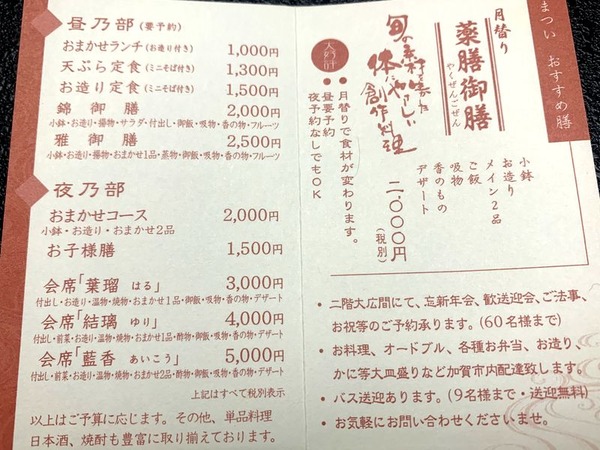 昼乃部(要予約)
おまかせランチ(お造り付き) 1,000円
天ぷら定食(ミニそば付き) 1,300円
お造り定食(ミニそば付き) 1,500円
錦御膳 2,000円
小鉢・お造り・揚物・サラダ・付出し・御飯・吸物・香の物・フルーツ
雅御膳 2,500円
小鉢・お造り・揚物・おまかせ1品・蒸物・御飯・吸物・香の物・フルーツ
夜乃部
おまかせコース 2,000円
小鉢・お造り・おまかせ2品
お子様膳 1,500円
会席「葉瑠 はる」 3,000円
付出し・お造り・温物・焼物・おまかせ1品・御飯・吸物・香の物・デザート
会席「結璃 ゆり」 4,000円
付出し・前菜・お造り・温物・焼物・おまかせ1品・酢物・御飯・吸物・香の物・デザート
会席「藍香 あいこう」 5,000円
付出し・前菜・お造り・温物・焼物・おまかせ2品・酢物・御飯・吸物・香の物・デザート
上記はすべて税別表示
以上はご予算に応じます。その他、単品料理
日本酒、焼酎も豊富に取り揃えております。
まつい おすすめ膳
月替り
薬膳御膳
やくぜんごぜん
旬の素材を使った
体にやさしい
創作料理
小鉢
お造り
メイン2品
ご飯
吸物
香のもの
デザート
二、〇〇〇円
(税別)
大好評
●月替りで食材が変わります。
●昼要予約
夜予約なしでもOK
・二階大広間にて、忘新年会、歓送迎会、ご法事、
お祝等のご予約承ります。(60名様まで)
・お料理、オードブル、各種お弁当、お造り、
かに等大皿盛りなど加賀市内配達致します。
・バス送迎あります。(9名様まで・送迎無料)
・お気軽にお問い合わせくださいませ。